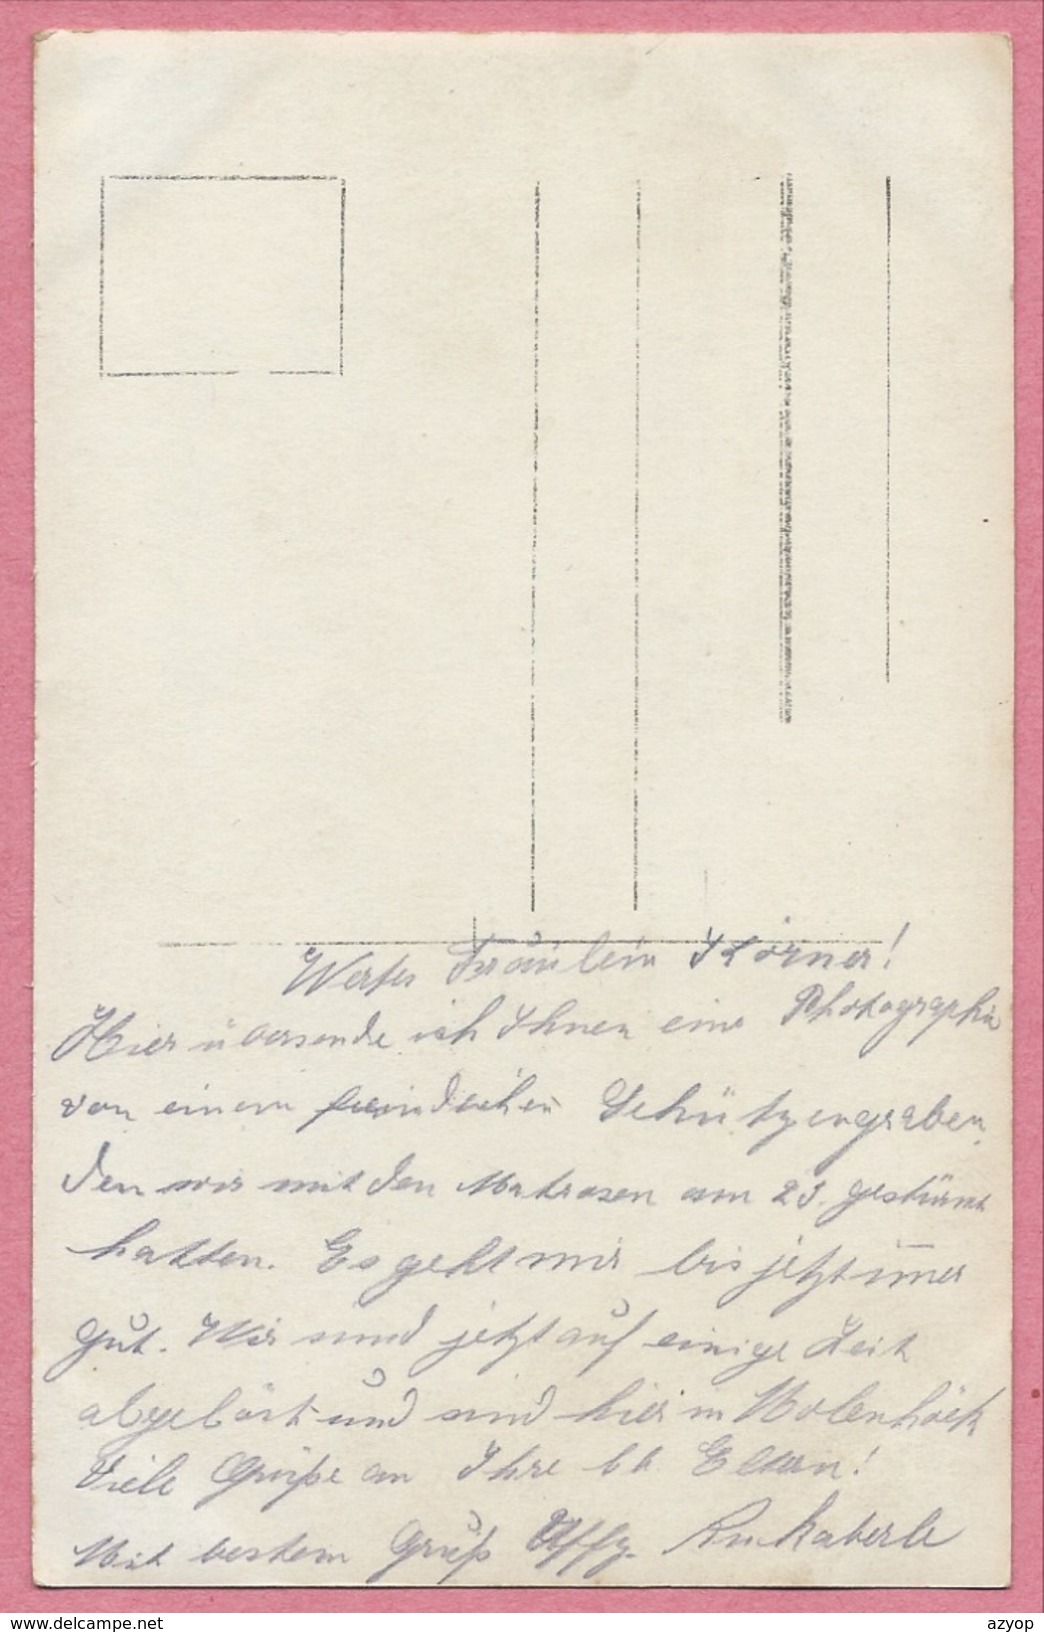 Wertes Fräulein Körner!
Hier übersende ich Ihnen eine Photographie
von einem feindlichen Schützengraben
den wir mit den Matrosen am 25. gestürmt
hatten. Es geht mir bis jetzt im̄er
gut. Wir sind jetzt auf einige Zeit
abgelöst und sind hier in Molenhöck
Viele Grüße an Ihre lb. Eltern!
Mit bestem Gruß Uffz.
www.delcampe.net
azyop